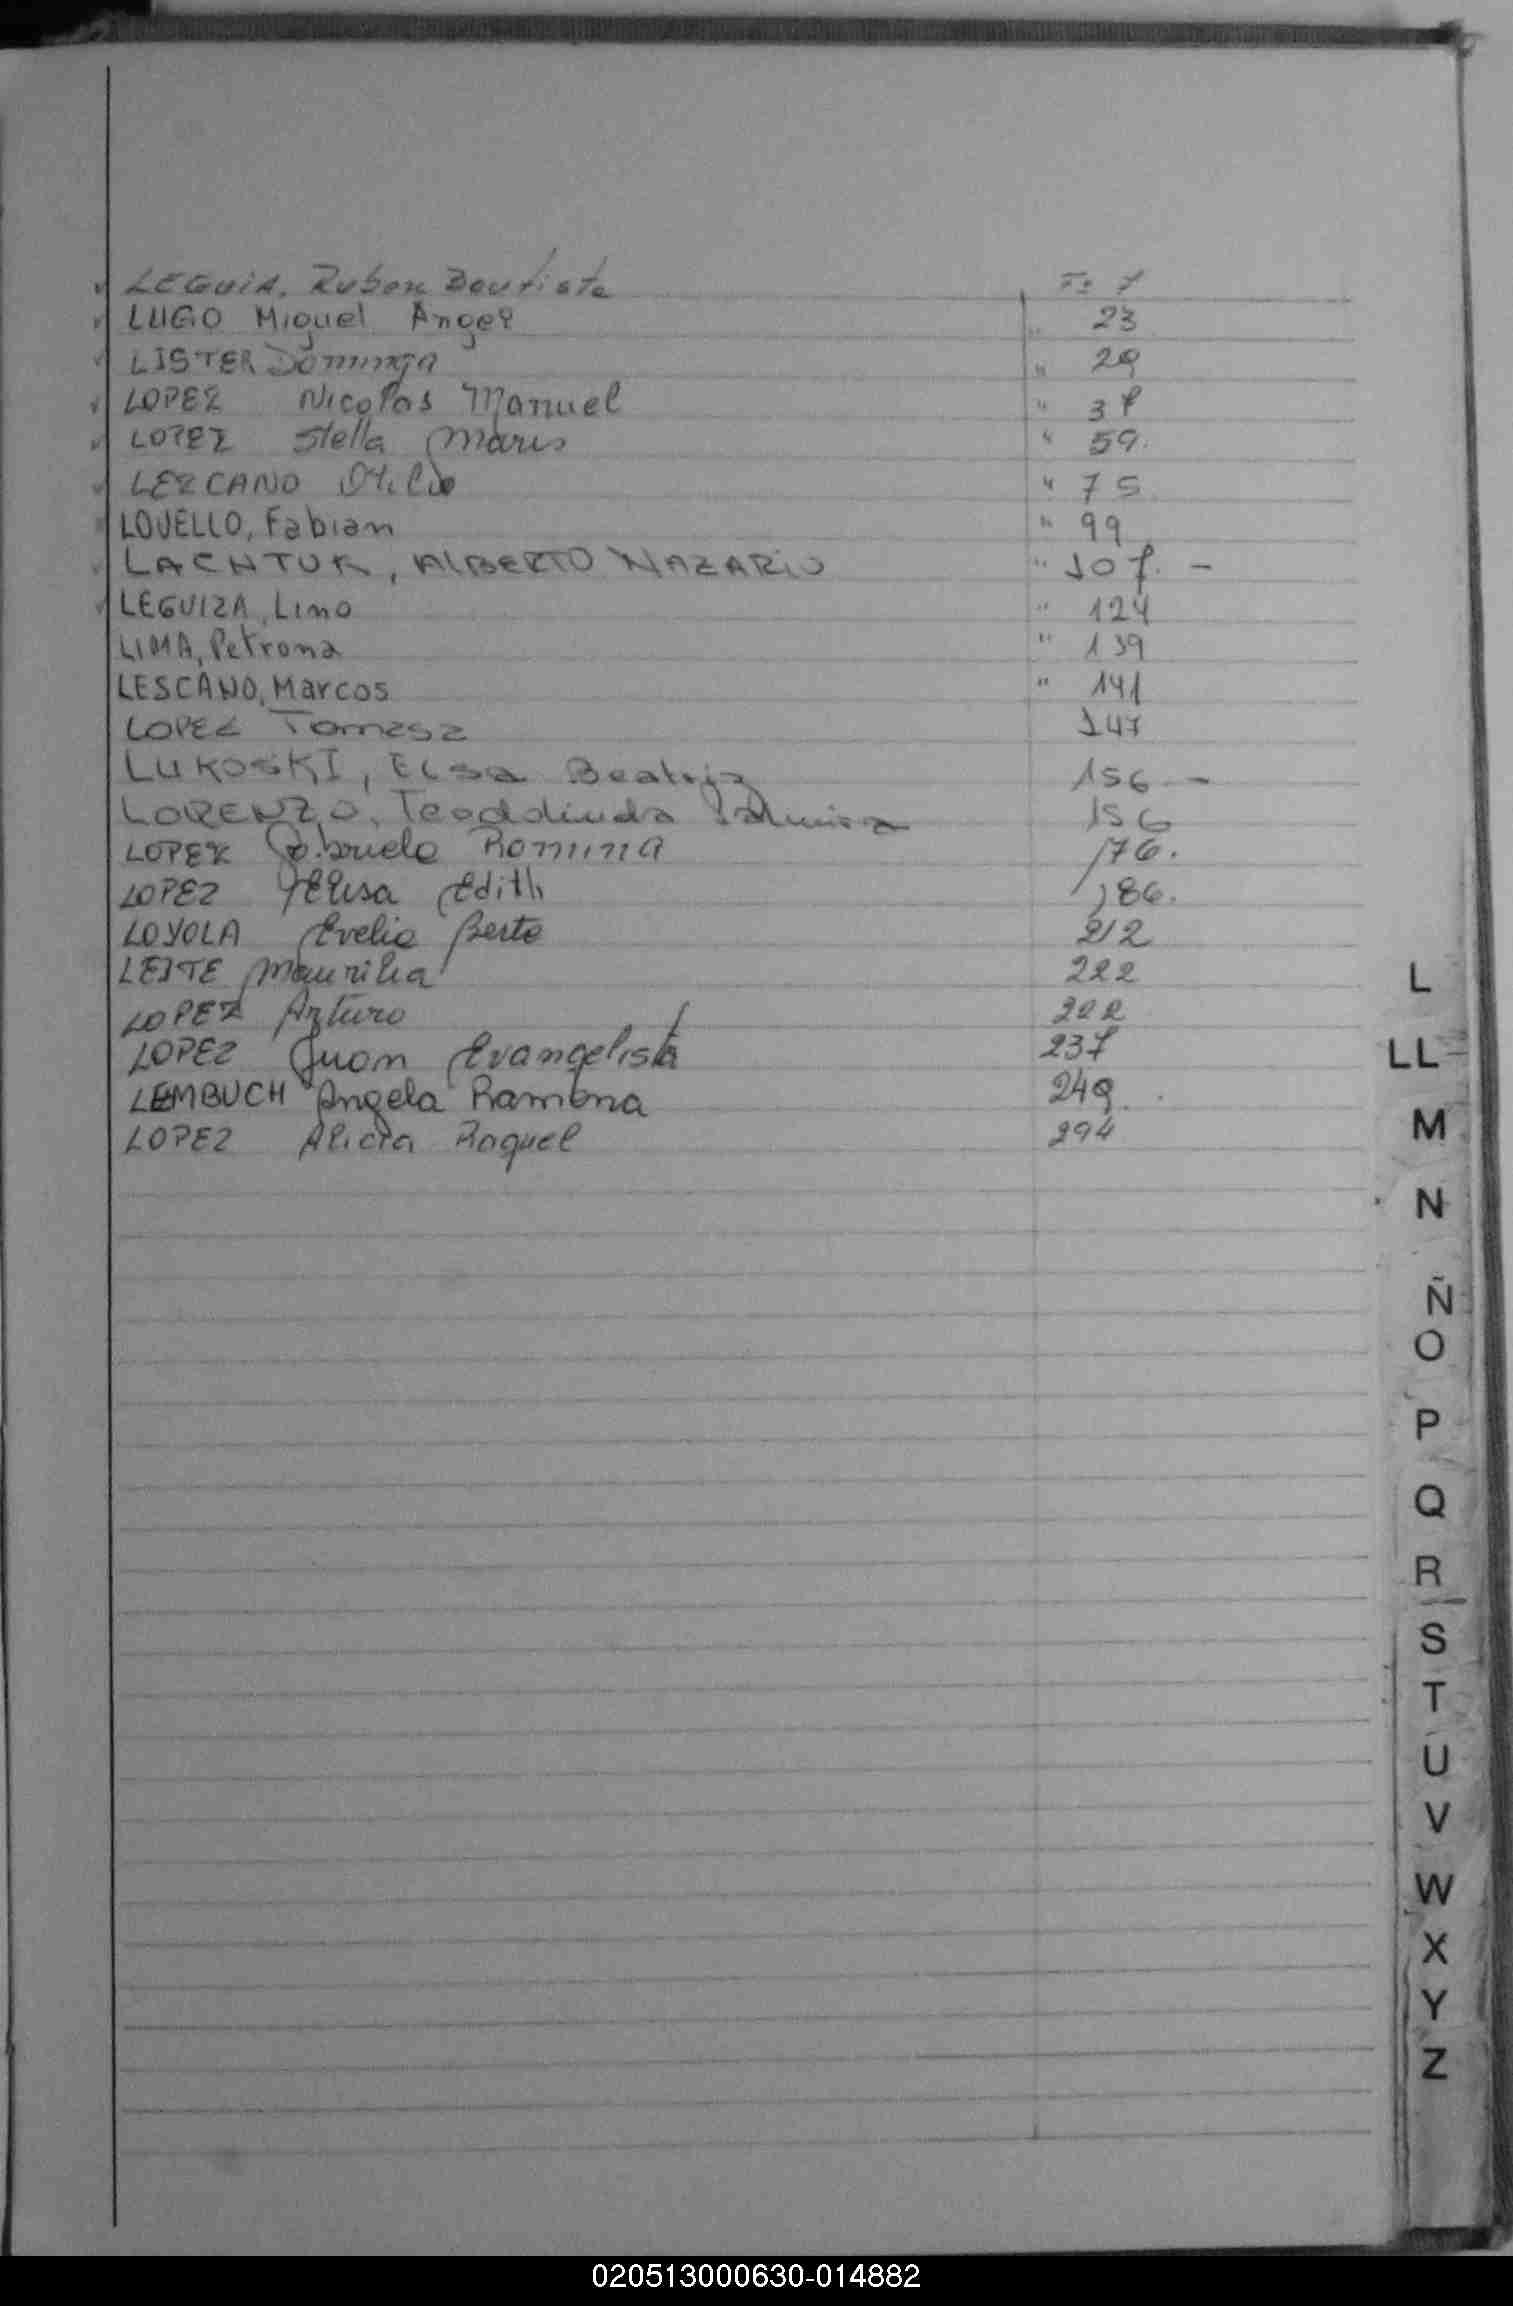 LEGUIA, Ruben Bautista Fº 7
LUGO Miguel Angel " 23
LISTER Dominga " 29
LOPEZ Nicolas Manuel " 37
LOPEZ Stella Maris " 59.
LEZCANO Otilio " 75
LOVELLO, Fabian " 99
LACHTUK, ALBERTO NAZARIO " 107. -
LEGUIZA, Lino " 124
LIMA, Petrona " 139
LESCANO, Marcos " 141
LOPEZ Tomasa 147
LUKOSKI, Elsa Beatriz 156 -
LORENZO, 156
LOPEZ Gabriela Romina 176.
LOPEZ Elisa Edith 186.
LOYOLA Evelia Berta 212
LEITE Maurilia 222
LOPEZ Arturo 222
LOPEZ Juan Evangelista 237
LEMBUCH Angela Ramona 249
LOPEZ Alicia Raquel 294
L
LL
M
N
Ñ
O
P
Q
R
S
T
U
V
W
X
Y
Z
020513000630-014882